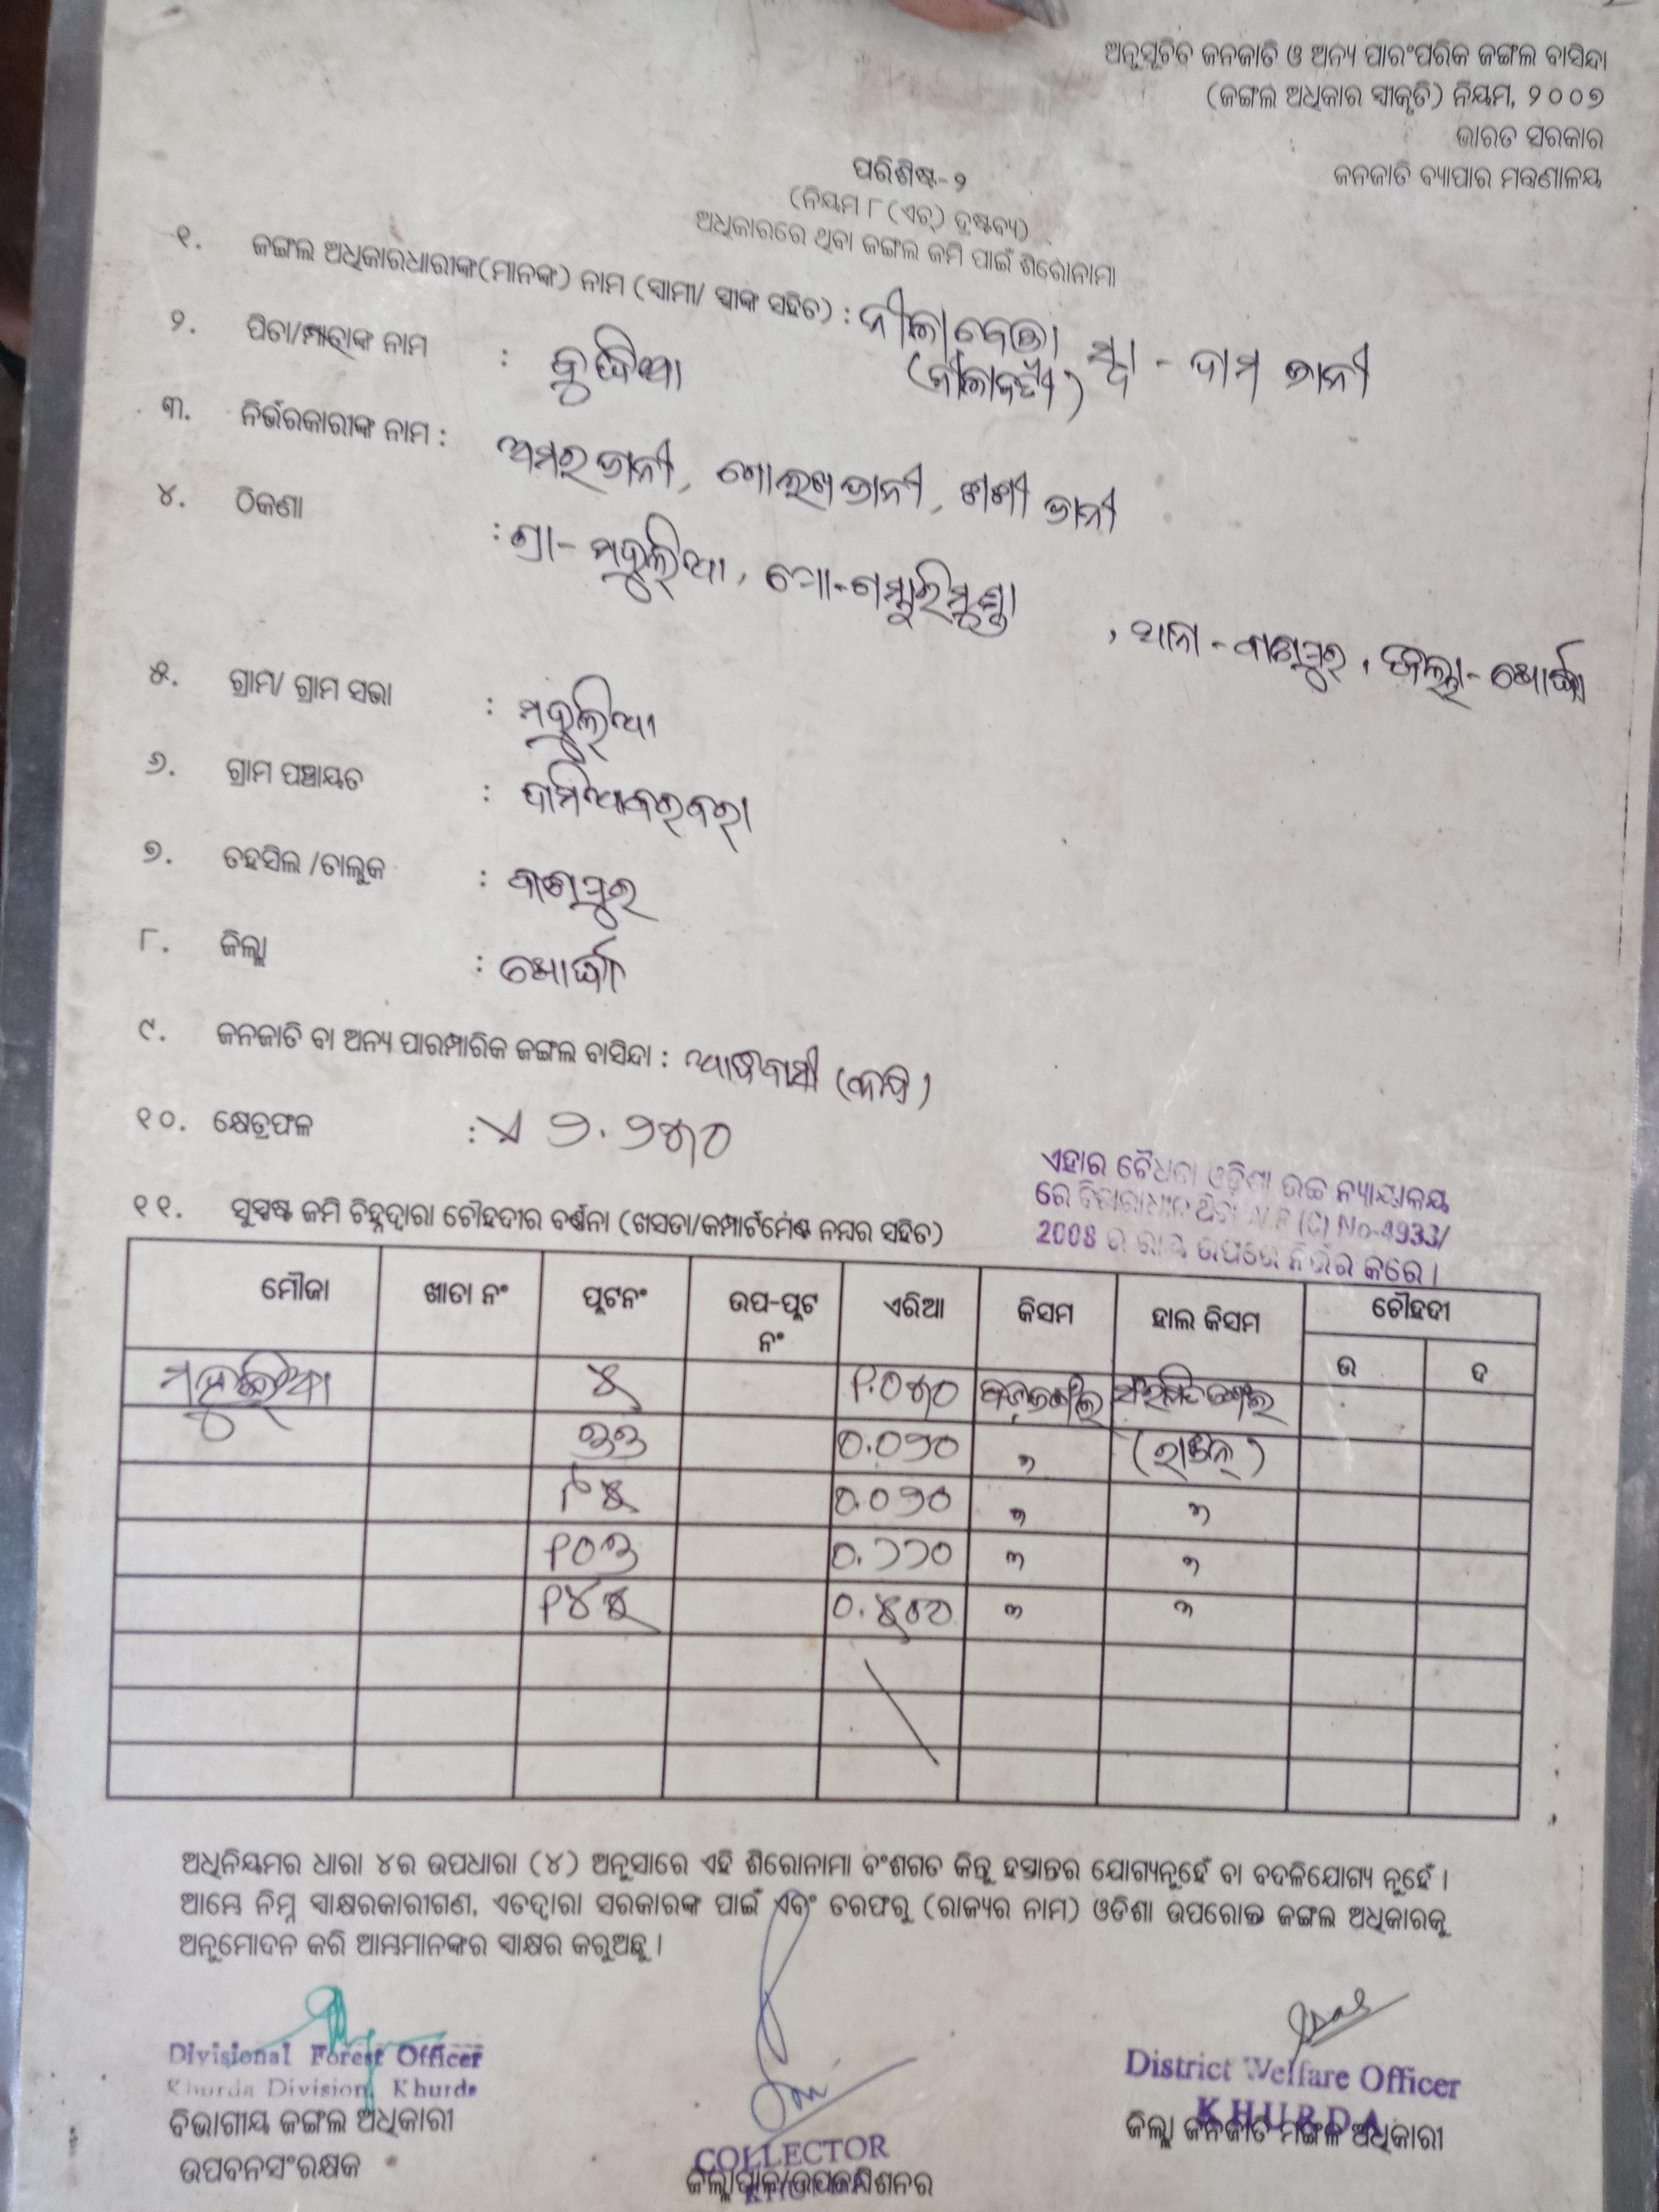 ଅନୁସୂଚିତ ଜନଜାତି ଓ ଅନ୍ୟ ପାରଂପରିକ ଜଙ୍ଗଲ ବାସିନ୍ଦା
(ଜଙ୍ଗଲ ଅଧିକାର ସ୍ୱୀକୃତି) ନିୟମ, ୨୦୦୭
ଭାରତ ସରକାର
ଜନଜାତି ବ୍ୟାପାର ମନ୍ତ୍ରଣାଳୟ
ପରିଶିଷ୍ଟ-୨
(ନିୟମ ୮ (ଏଚ୍) ଦ୍ରଷ୍ଟବ୍ୟ)
ଅଧିକାରରେ ଥିବା ଜଙ୍ଗଲ ଜମି ପାଇଁ ଶିରୋନାମା
୧. ଜଙ୍ଗଲ ଅଧିକାରଧାରୀଙ୍କ(ମାନଙ୍କ) ନାମ (ସ୍ୱାମୀ/ ସ୍ତ୍ରୀଙ୍କ ସହିତ) : ନୀଳା ବେଉା ସ୍ୱା - ଦାମ ଭାନୀ
(ନୀଳାବତୀ)
୨. ପିତା/ମାତାଙ୍କ ନାମ :
୩. ନିର୍ଭରକାରୀଙ୍କ ନାମ : ଅମର ଭାନୀ, ଗୋଲଖ ଭାନୀ, ଶଶୀ ଭାନୀ
୪. ଠିକଣା : ଗ୍ରା- ମହୁଲିଆ, ପୋ-ଗମ୍ଭାରିମୁଣ୍ଡା, ଥାନା - ବାଣପୁର, ଜିଲ୍ଲା- ଖୋର୍ଦ୍ଧା
୫. ଗ୍ରାମ/ ଗ୍ରାମ ସଭା : ମହୁଲିଆ
୬. ଗ୍ରାମ ପଞ୍ଚାୟତ : ଦାମିଆବରବରା
୭. ତହସିଲ /ତାଲୁକ : ବାଣପୁର
୮. ଜିଲ୍ଲା : ଖୋର୍ଦ୍ଧା
୯. ଜନଜାତି ବା ଅନ୍ୟ ପାରମ୍ପାରିକ ଜଙ୍ଗଲ ବାସିନ୍ଦା : ଆଦିବାସୀ (କନ୍ଧ)
୧୦. କ୍ଷେତ୍ରଫଳ : ଏ ୨.୨୫୦
ଏହାର ବୈଧତା ଓଡ଼ିଶା ଉଚ୍ଚ ନ୍ୟାୟାଳୟ
ରେ ବିଚାରାଧୀନ ଥିବା W.P (C) No-4933/
2008 ର ରାୟ ଉପରେ ନିର୍ଭର କରେ।
୧୧. ସୁସ୍ପଷ୍ଟ ଜମି ଚିହ୍ନଦ୍ୱାରା ଚୌହଦୀର ବର୍ଣ୍ଣନା (ଖସଡା/କମ୍ପାର୍ଟମେଣ୍ଟ ନମ୍ବର ସହିତ)
ମୌଜା ଖାତା ନଂ ପ୍ଲଟନଂ ଉପ-ପ୍ଲଟ ନଂ ଏରିଆ କିସମ ହାଲ କିସମ ଚୌହଦୀ
ଉ ଦ
ମହୁଲିଆ ୫ ୧.୦୫୦ ସଂରକ୍ଷିତ ଜଙ୍ଗଲ
୩୩ ୦.୦୨୦ "
୧୫ ୦.୦୨୦ " "
୧୦୩ " "
୧୪୫ " "
ଅଧିନିୟମର ଧାରା ୪ର ଉପଧାରା (୪) ଅନୁସାରେ ଏହି ଶିରୋନାମା ବଂଶଗତ କିନ୍ତୁ ହସ୍ତାନ୍ତର ଯୋଗ୍ୟନୁହେଁ ବା ବଦଳିଯୋଗ୍ୟ ନୁହେଁ ।
ଆମ୍ଭେ ନିମ୍ନ ସ୍ୱାକ୍ଷରକାରୀଗଣ, ଏତଦ୍ୱାରା ସରକାରଙ୍କ ପାଇଁ ଏବଂ ତରଫରୁ (ରାଜ୍ୟର ନାମ) ଓଡିଶା ଉପରୋକ୍ତ ଜଙ୍ଗଲ ଅଧିକାରକୁ
ଅନୁମୋଦନ କରି ଆମ୍ଭମାନଙ୍କର ସ୍ୱାକ୍ଷର କରୁଅଛୁ ।
Divisional Forest Officer
Khurda Division, Khurda
ବିଭାଗୀୟ ଜଙ୍ଗଲ ଅଧିକାରୀ
ଉପବନସଂରକ୍ଷକ
COLLECTOR
ଜିଲ୍ଲାପାଳ/ଉପକମିଶନର
District Welfare Officer
KHURDA
ଜିଲ୍ଲା ଜନଜାତି ମଙ୍ଗଳ ଅଧିକାରୀ